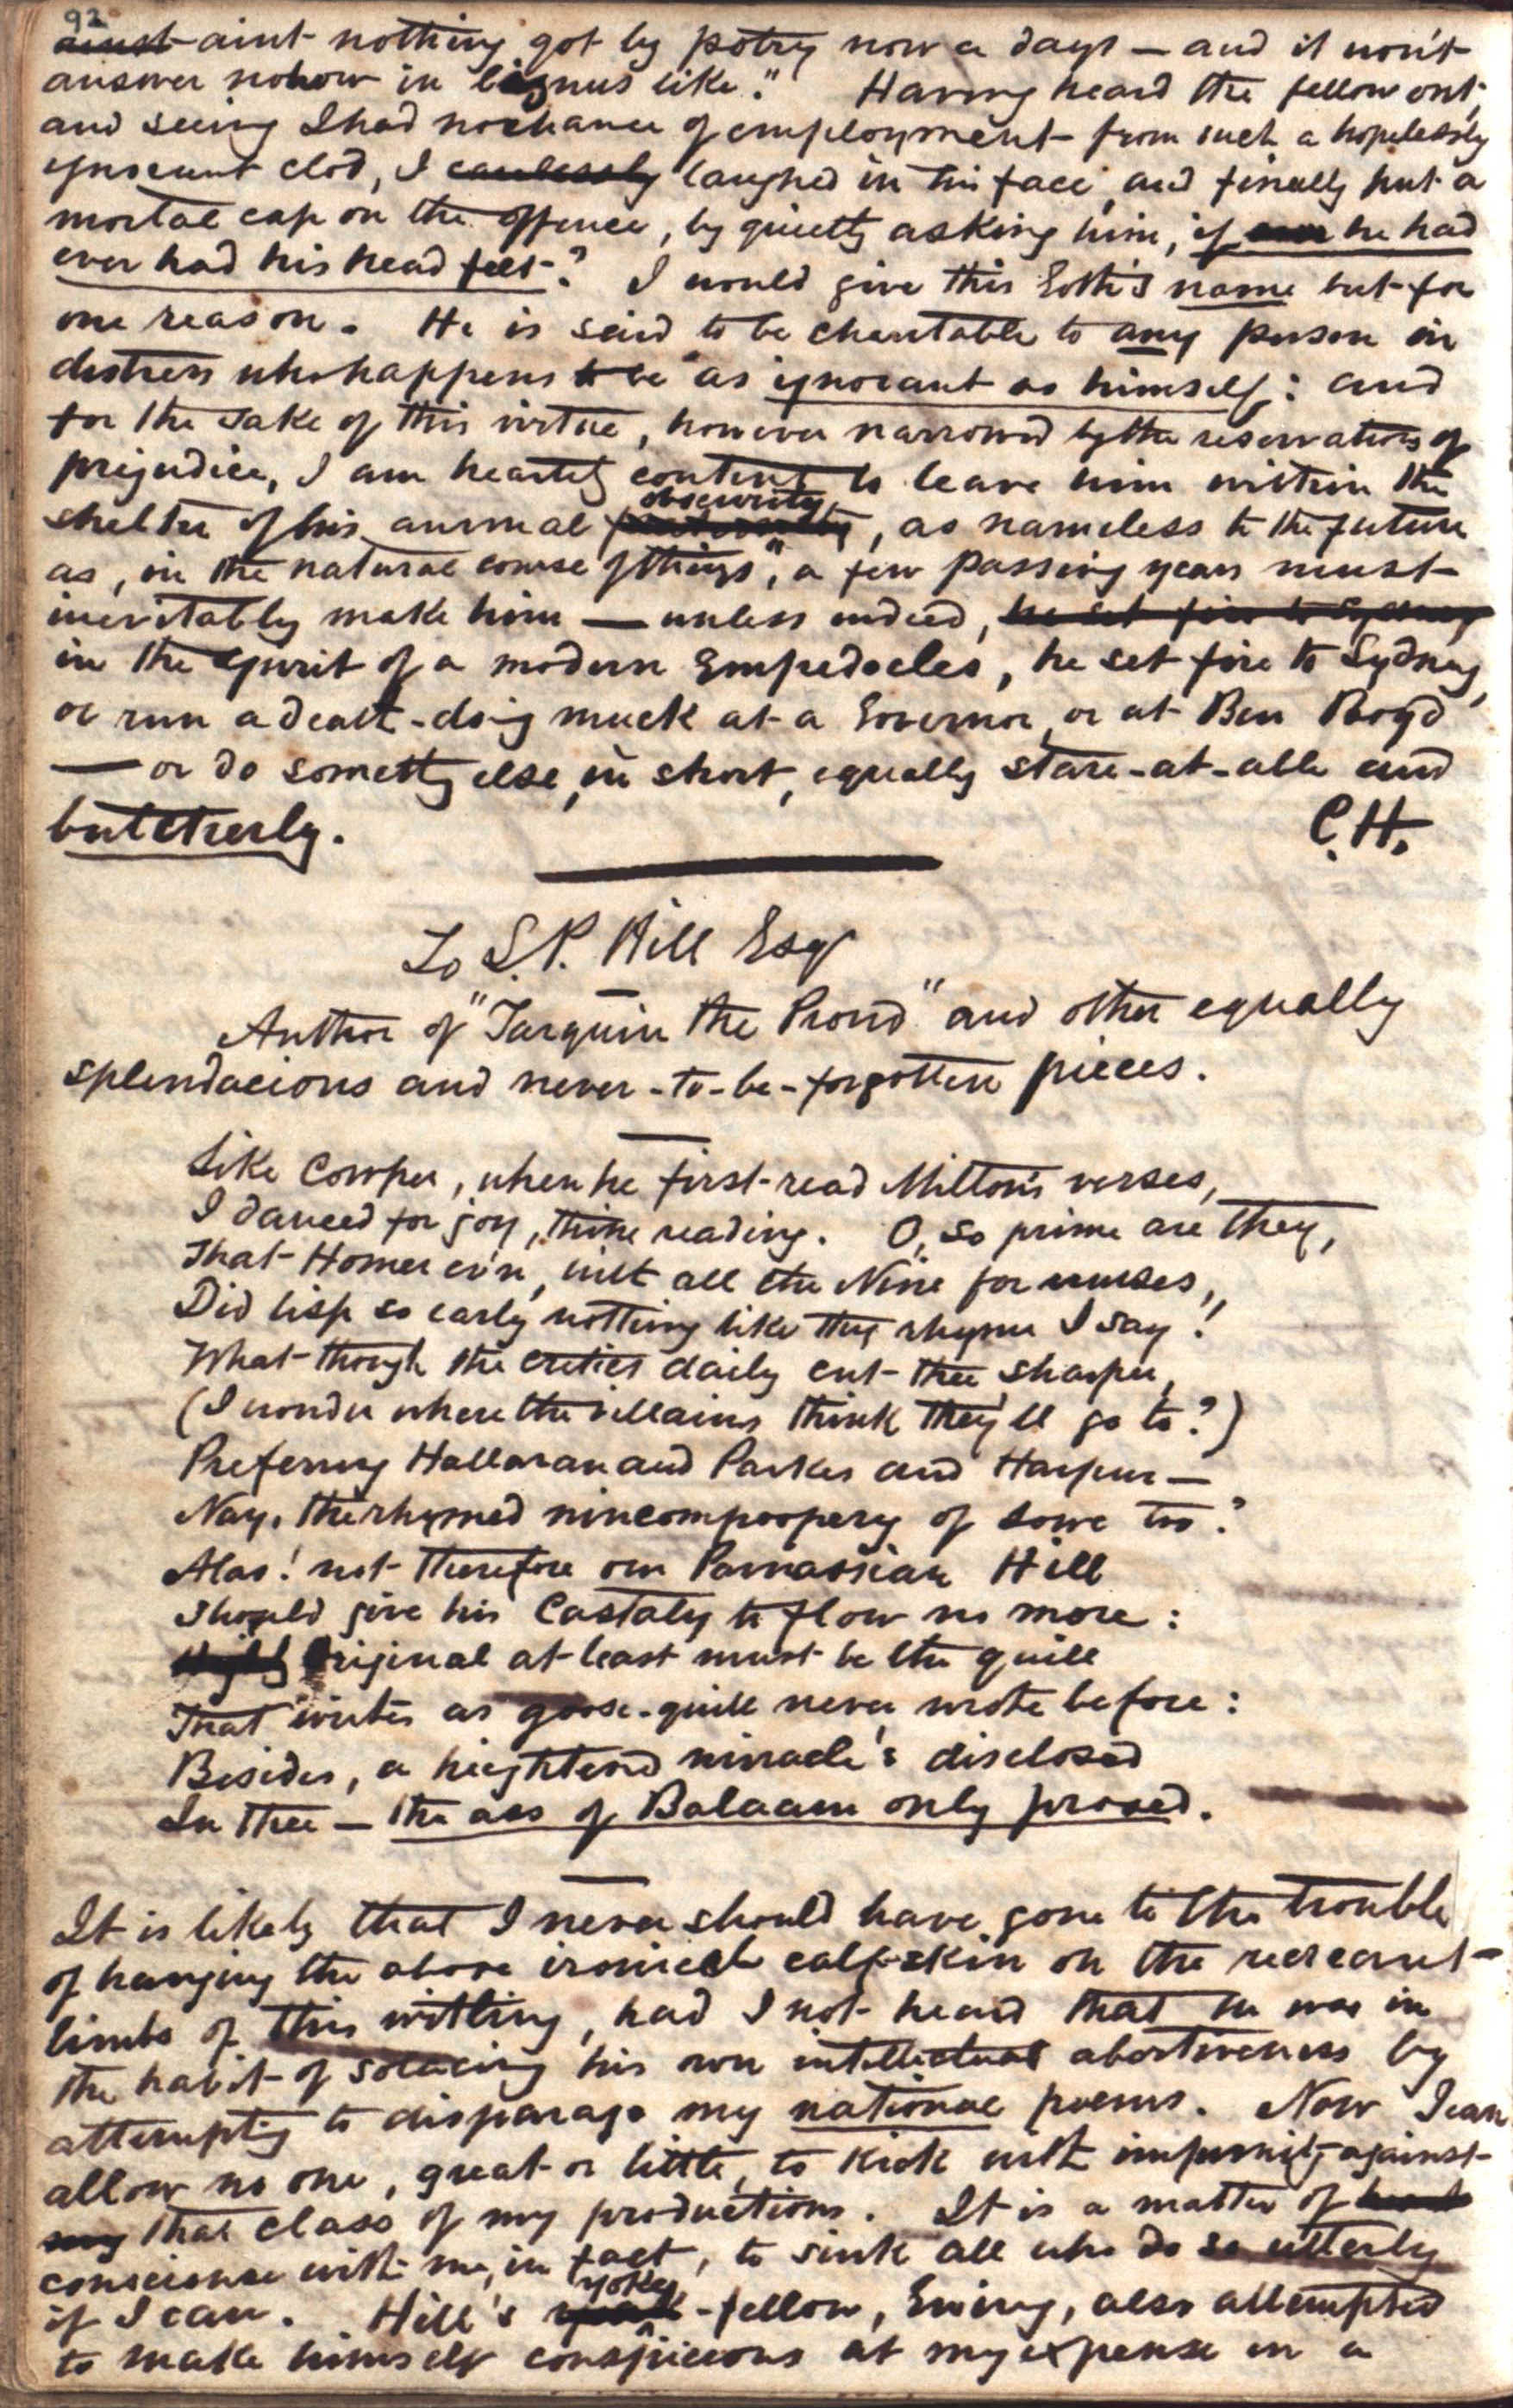 92
aint nothing got by potry now a days — and it won't
answer nohow in bisnus like." Having heard the fellow out,
and seeing I had no chance of employment from such a hopelessly
ignorant clod, I carelessly laughed in his face, and finally put a
mortal cap on the offence, by quietly asking him, if he had
ever had his head felt? I would give this Goth's name but for
one reason. He is said to be charitable to any person in
distress who happens to be as ignorant as himself: and
for the sake of this virtue, however narrowed by the reservations of
prejudice, I am heartily content to leave him within the
obscurity
shelter of his animal , as nameless to the future
as, "in the natural course of things", a few passing years must
inevitably make him — unless indeed, he set fire to Sydney
in the spirit of a modern Empedocles, he set fire to Sydney,
or run a dealt-doing muck at a Governor, or at Ben Boyd
— or do somettg else, in short, equally stare-at-able and
butcherly.
C.H.
To S.P. Hill Esqr
Author of "Tarquin the Proud" and other equally
splendacious and never-to-be-forgotten pieces.
Like Cowper, when he first read Milton's verses,
I danced for joy, thine reading. O, so prime are they,
That Homer ev'n, with all the Nine for nurses,
Did lisp so early nothing like thy rhyme I say!
What though the critics daily cut thee sharper,
(I wonder where the villains think they'll go to?)
Preferring Halloran and Parkes and Harpur —
Nay, the rhymed nincompoopery of Lowe too?
Alas! not therefore our Parnassian Hill
Should give his Castaly to flow no more:
Original at least must be the quill
That writes as goose-quill never wrote before:
Besides, a heightened miracle's disclosed
In thee — the ass of Balaam only prosed.
It is likely that I never should have gone to the trouble
of hanging the above ironical calf-skin on the recreant
limbs of this witling, had I not heard that he was in
the habit of solacing his own intellectual abortiveness by
attempting to disparage my national poems. Now I can
allow no one, great or little, to kick with impunity against
my that class of my productions. It is a matter of
conscience with me, in fact, to sink all who do so utterly
yoke
if I can. Hill's -fellow, Ewing, also attempted
to make himself conspicuous at my expense in a